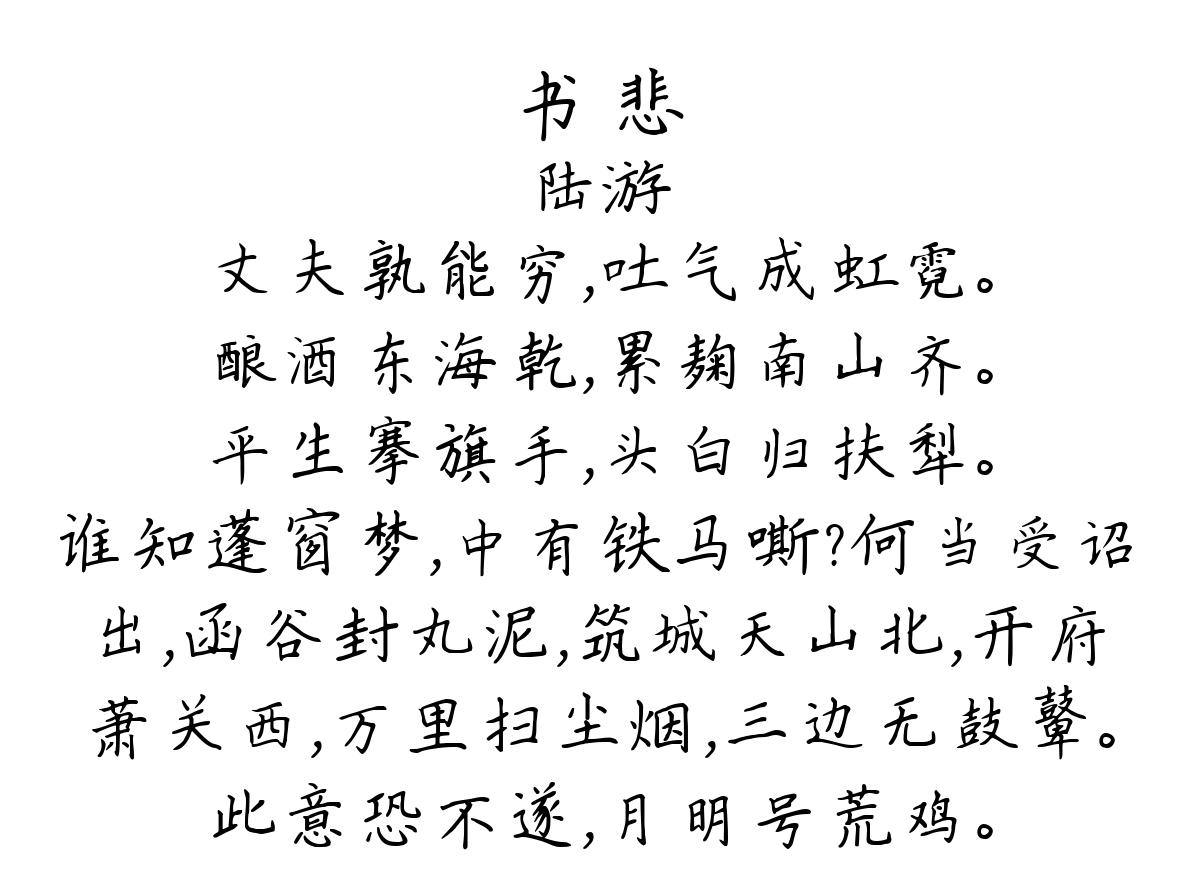 书悲
陆游
丈夫孰能穷,吐气成虹霓。
酿酒东海乾,累麹南山齐。
平生搴旗手,头白归扶犁。
谁知蓬窗梦,中有铁马嘶?何当受诏
出,函谷封丸泥,筑城天山北,开府
萧关西,万里扫尘烟,三边无鼓鼙。
此意恐不遂,月明号荒鸡。